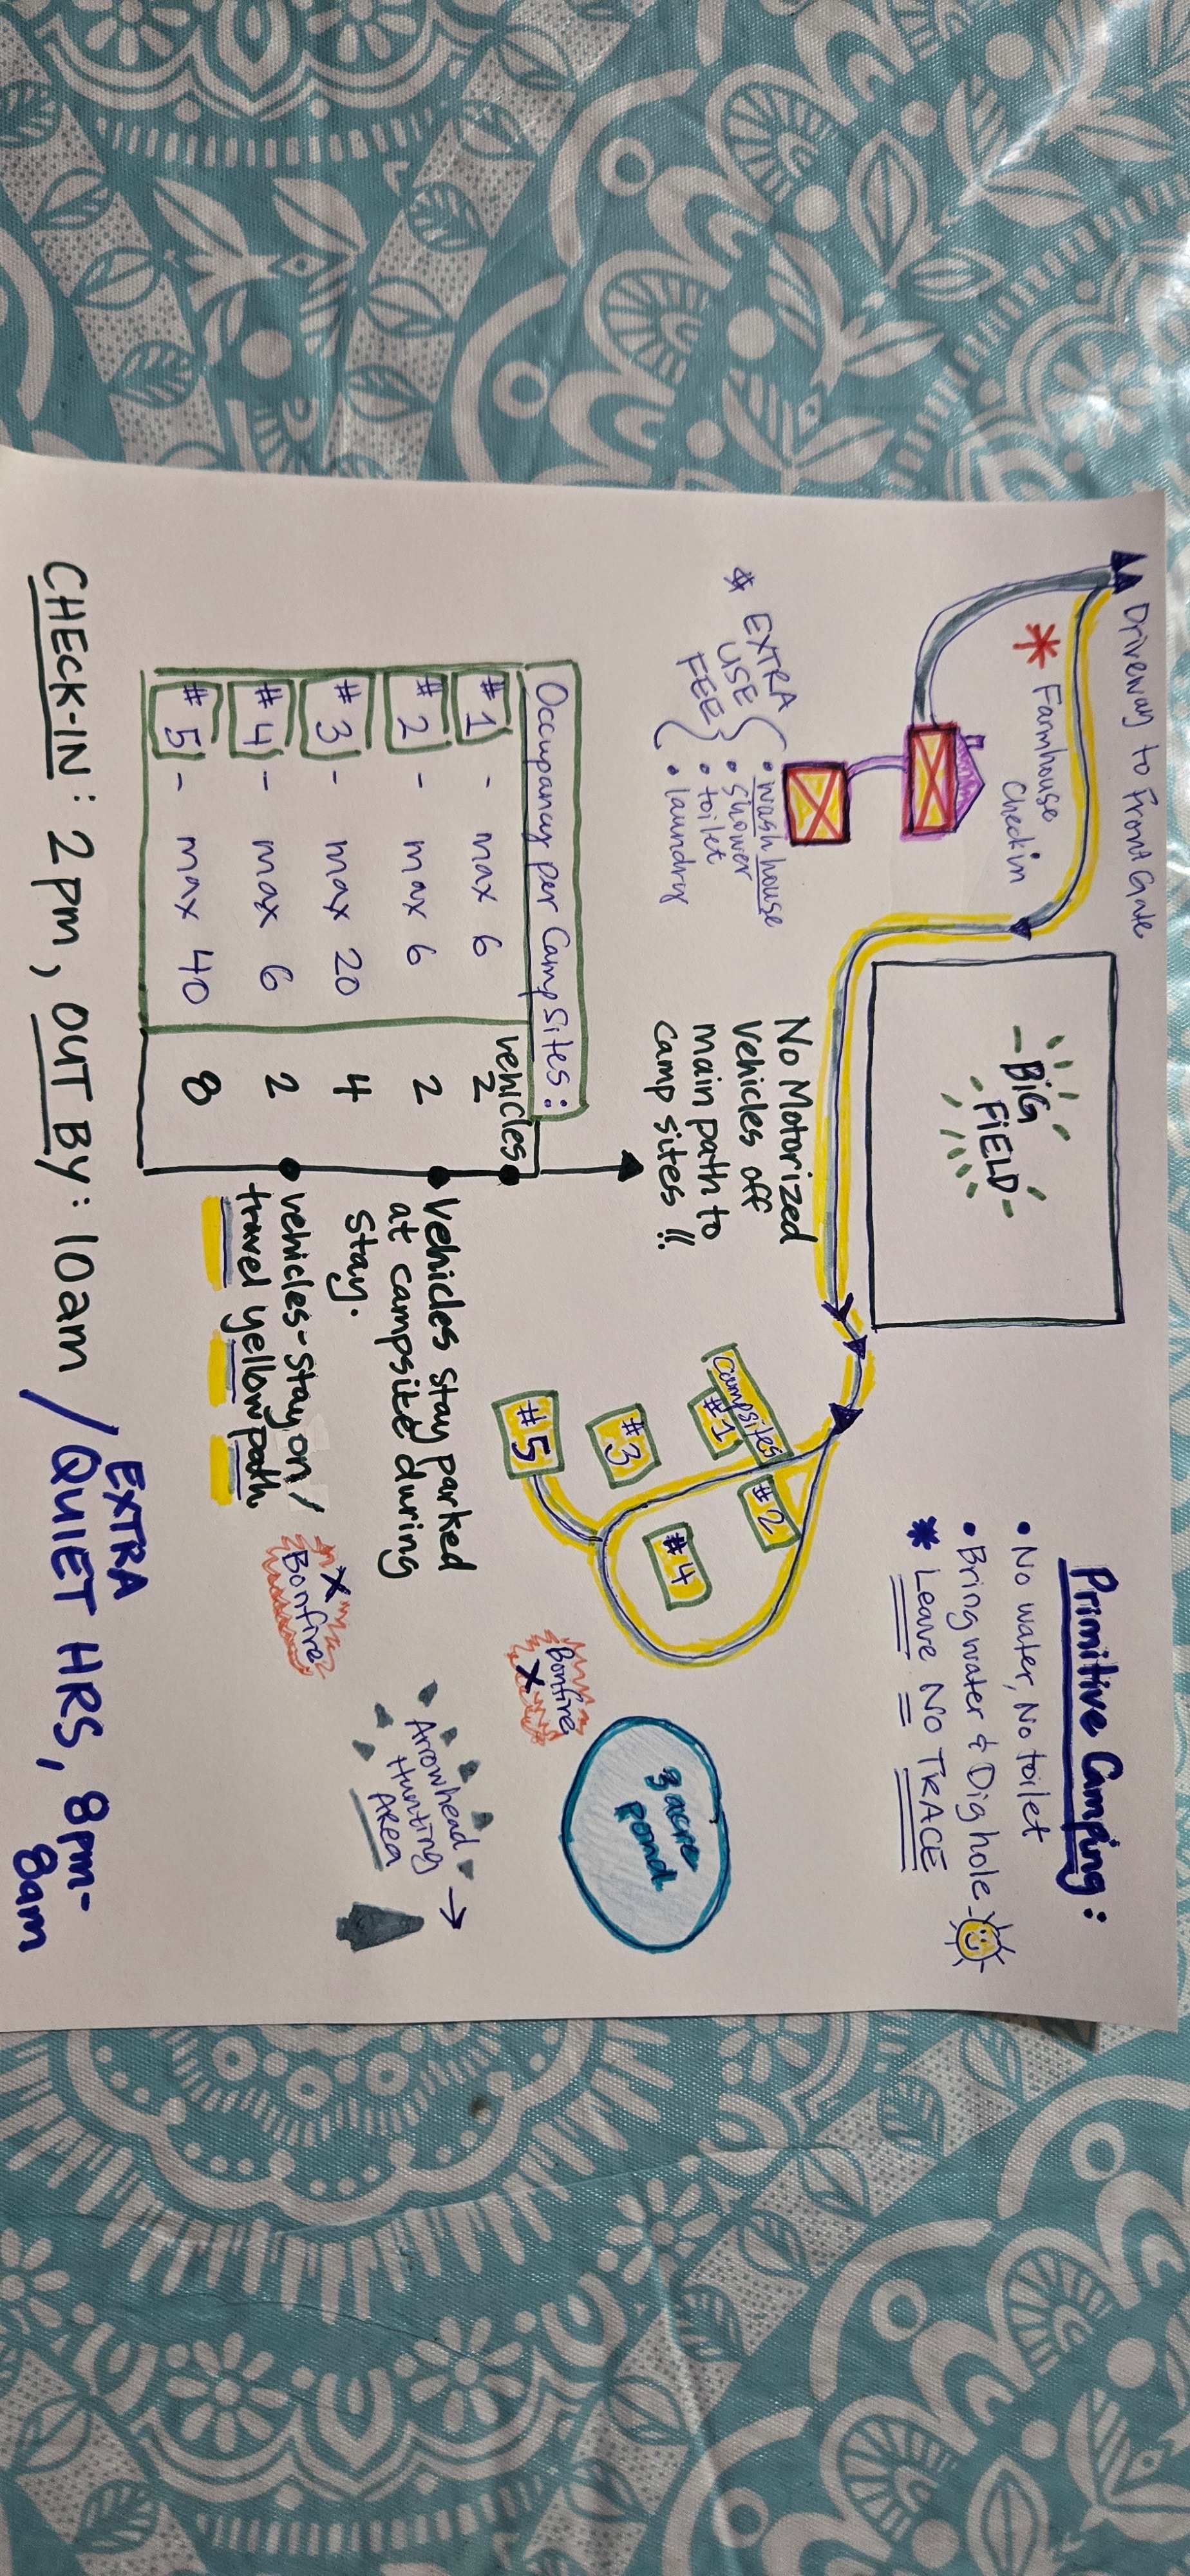 Driveway to Front Gate
* Farmhouse
Check in
BiG
FiELD
Primitive Camping:
• No water, No toilet
• Bring water & Dig hole
* Leave No TRACE
* EXTRA
USE
FEE
• wash house
• shower
• toilet
• laundry
No Motorized
Vehicles off
main path to
camp sites !!
campsites
#1
#2
#3
#4
#5
Bonfire
X
3 acre
pond
Occupancy per Camp Sites:
vehicles
#1 - max 6 2
#2 - max 6 2
#3 - max 20 4
#4 - max 6 2
#5 - max 40 8
Vehicles stay parked
at campsite during
Stay.
vehicles-stay on/
travel yellow path
X
Bonfire
Arrowhead
Hunting
AREA
CHECK-IN: 2pm, OUT BY: 10am / QUIET HRS, 8pm-
8am
EXTRA